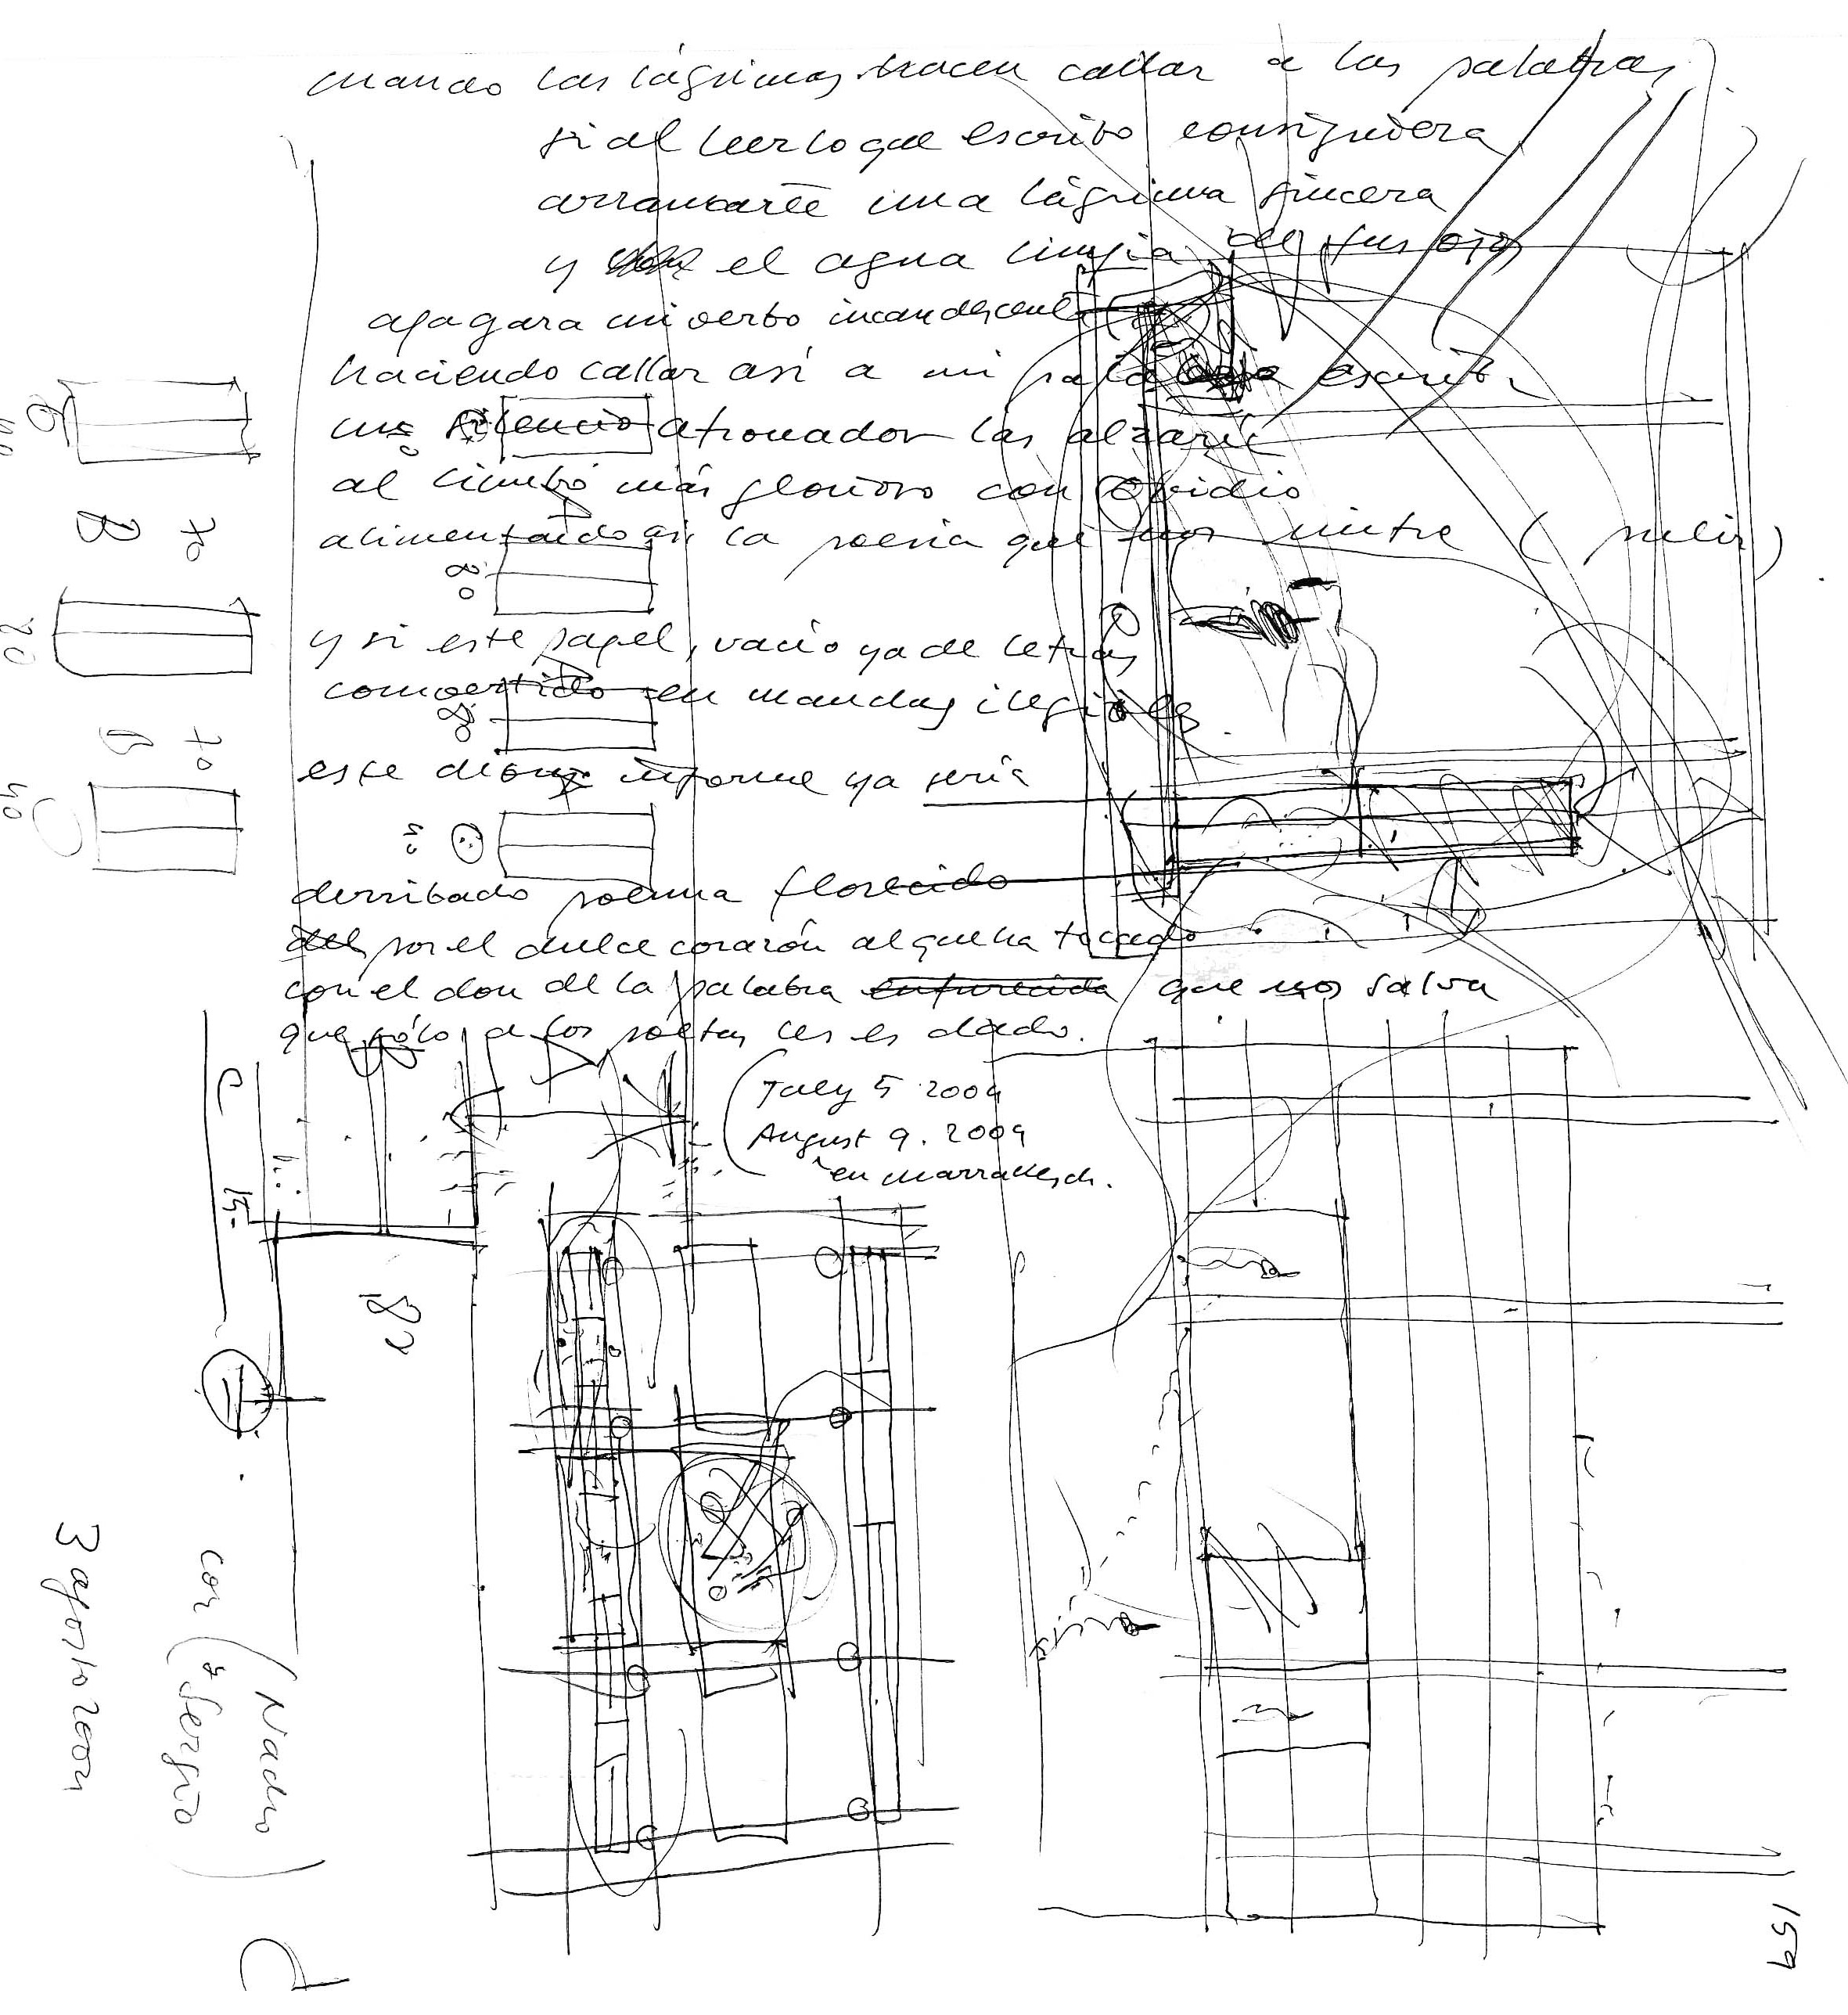 cuando las lágrimas hacen callar a las palabras
si al leer lo que escribo consiguiera
arrancarte una lágrima sincera
y el agua limpia de tus ojos
apagara mi verbo incandescente
haciendo callar así a mi palabra escrita
un silencio atronador las alzaría
al limbo más glorioso con Ovidio
alimentando así la poesía que nos nutre ( pulir )
y si este papel, vacío ya de letras
convertido en manchas ilegibles
este dibujo informe ya sería
derribado poema florecido
por el dulce corazón al que ha tocado
con el don de la palabra enfurecida que nos salva
que sólo a los poetas les es dado.
July 5 2009
August 9. 2009
en marrakesch.
70
20
70
40
80
80
con ( Nacho
y Sergio )
3 agosto 2009
159